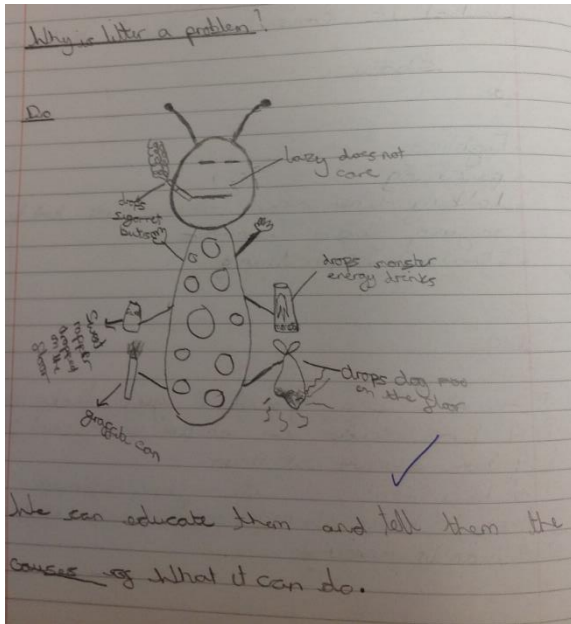 Why is litter a problem?
Do
lazy does not
care
drops
sigarret
drops monster
energy drinks
Sweet
rapper
dropped
on the
floor
drops dog poo
on the floor
graffite can
We can educate them and tell them the
causes of What it can do.